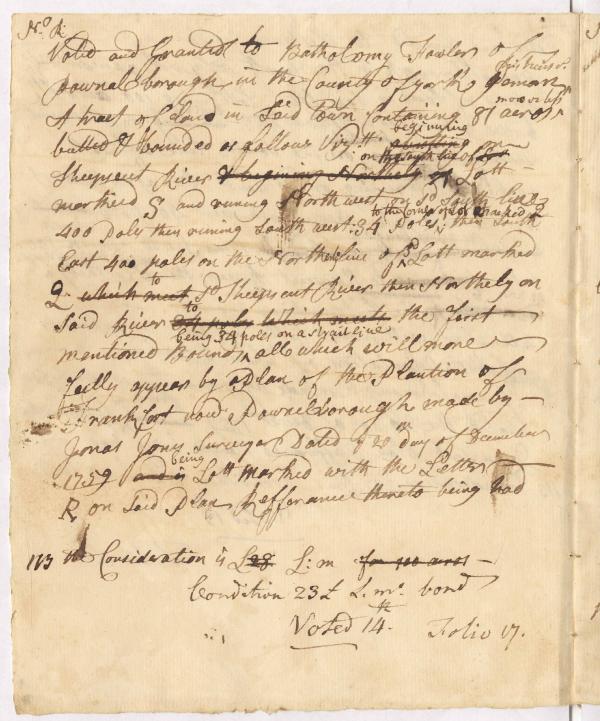 No. R:
Voted and Granted to Batholomy Fowler of
Pownalborough in the County of york yeoman
A tract of Land in Said Town Containing 87 acres
more or less
butted & bounded as follows Vizt:
beginning
on the South line of Lott
Sheepscut River & begining Northely of Lott
marked S and runing North west on sd South line
400 Poles then runing South west 34 Poles, then South
to the Corner of Lot marked Q
East 400 poles on the Northerly line of sd Lott marked
Q which meet to sd Sheepscut River then Northely on
Said River 34 poles which meets to the first
being 34 poles on a strait line
mentioned Bound, all which will more
fully appear by a Plan of the Plantion of
Frankfort now Pownelborough made by
Jonas Jones Surveyor Dated ye 20th day of December
1759 and is being Lott marked with the Letter
R on Said Plan Refferance thereto being had
113 the Consideration is L28 L: m for 100 acres
Condition 23£ L. my. bond
Voted 14th. Folio 17.